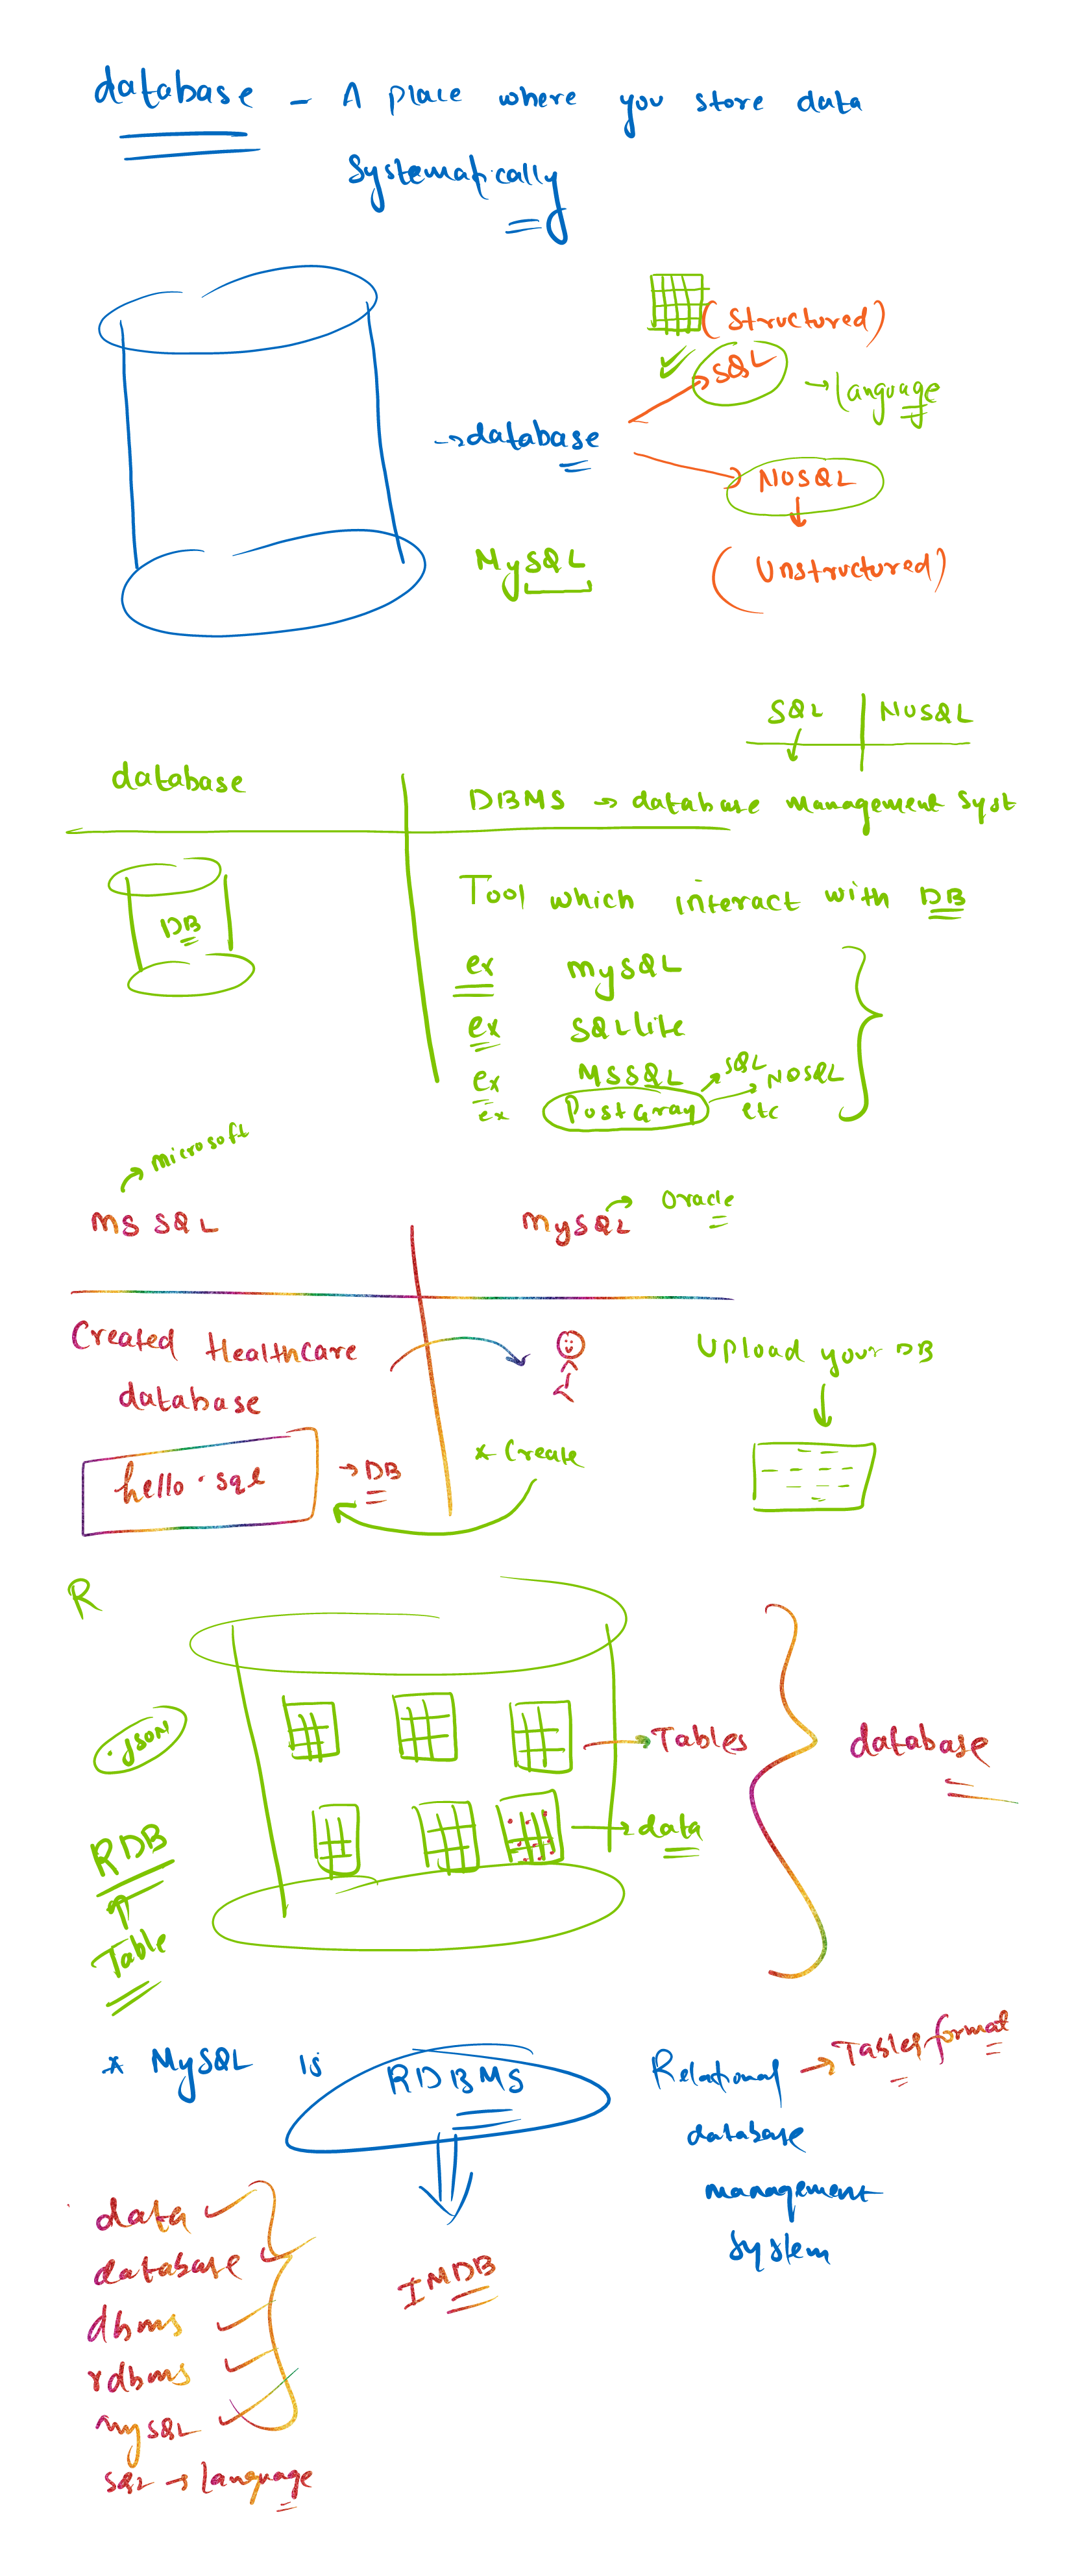 database - A place where you store data
systematically
(Structured)
SQL
→ language
→ database
NOSQL
MySQL
(Unstructured)
SQL | NOSQL
database
DBMS → database management syst
DB
Tool which interact with DB
ex mySQL
ex SQLlite
ex MSSQL
→ SQL
→ NOSQL
ex PostGray
etc
microsoft
MS SQL
MySQL
Oracle
Created HealthCare
database
Upload your DB
* Create
hello.sql → DB
R
.JSON
→ Tables
database
→ data
RDB
Table
* MySQL is RDBMS
Relational → Tables format
database
management
system
IMDB
data
database
dbms
rdbms
mysql
sql → language